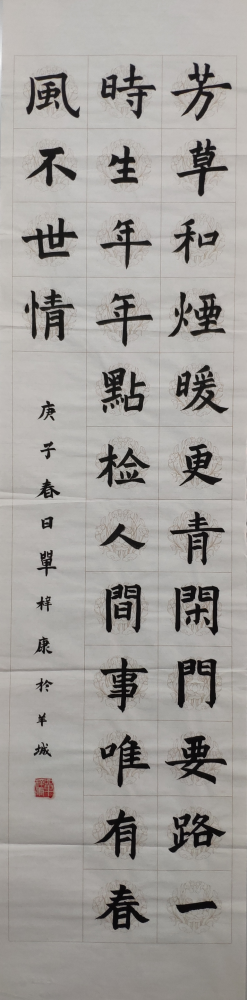 芳草和煙暖更青閑門要路一
時生年年點检人間事唯有春
風不世情
庚子春日單梓康於羊城